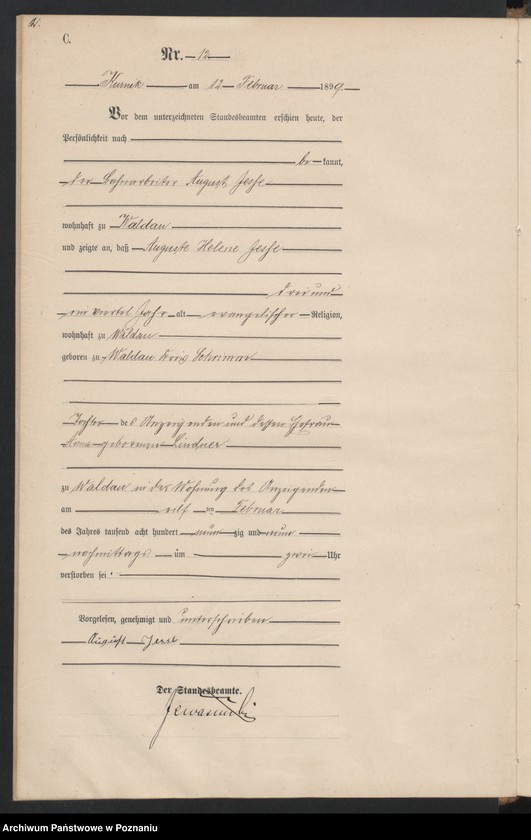 C.
Nr. 12
Kurnik am 12 Februar 1899
Vor dem unterzeichneten Standesbeamten erschien heute, der
Persönlichkeit nach
bekannt,
der Bahnarbeiter August Jesse
wohnhaft zu Waldau
und zeigte an, daß Auguste Helene Jesse
drei und
ein viertel Jahr alt evangelischer Religion,
wohnhaft zu Waldau
geboren zu Waldau Kreis Schrimm
Tochter des Anzeigenden und dessen Ehefrau
Anna geborenen Lindner
zu Waldau in der Wohnung des Anzeigenden
am elf ten Februar
des Jahres tausend acht hundert neunzig und neun
nachmittags um zwei Uhr
verstorben sei.
Vorgelesen, genehmigt und unterschrieben
August Jesse
Der Standesbeamte.
Archiwum Państwowe w Poznaniu